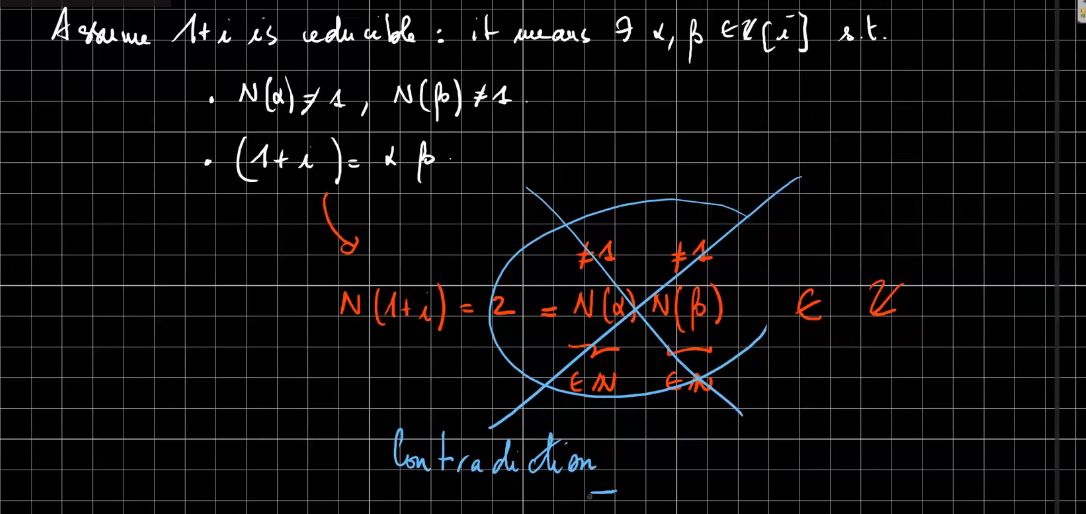 Assume 1+i is reducible : it means ∃ α, β ∈ ℤ[i] s.t.
• N(α) ≠ 1, N(β) ≠ 1.
• (1+i) = α β.
≠1 ≠1
N(1+i) = 2 = N(α) N(β) ∈ ℤ
∈ ℕ ∈ ℕ
Contradiction